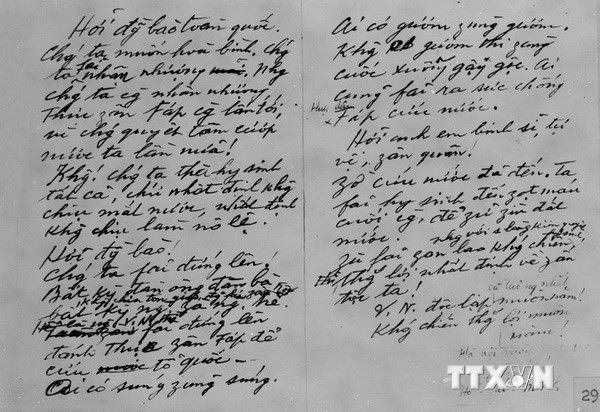 Hỡi đg bào toàn quốc.
Chg ta muốn hoà bình, chg
ta fải nhân nhượng. Nhg
chg ta cg nhân nhượng
thực zân Fáp cg lấn tới,
vì chg quyết tâm cướp
nước ta lần nữa!
Khg! Chg ta thà hy sinh
tất cả, chứ nhất định khg
chịu mất nước, nhất định
khg chịu làm nô lệ.
Hỡi đg bào!
Chg ta fải đứng lên!
Bất kỳ đàn ông đàn bà
bất kỳ ng zà ng trẻ.
fải đứng lên
đánh thực zân Fáp để
cứu tổ quốc
Ai có súng zùng súng.
Ai có gươm zùng gươm.
Khg có gươm thì zùng
cuốc xuổng gậy gộc. Ai
cũng fải ra sức chống
Fáp cứu nước.
Hỡi anh em binh sĩ, tự
vệ, zân quân!
Zờ cứu nước đã đến. Ta
fải hy sinh đến zọt máu
cuối cg, để zữ zìn đất
nước.
Zù fải zan lao khg chiến,
thg lợi nhất định về zân
tộc ta!
V. N. độc lập muôn năm!
Khg chiến thg lợi muôn
năm!
TTXVN
29